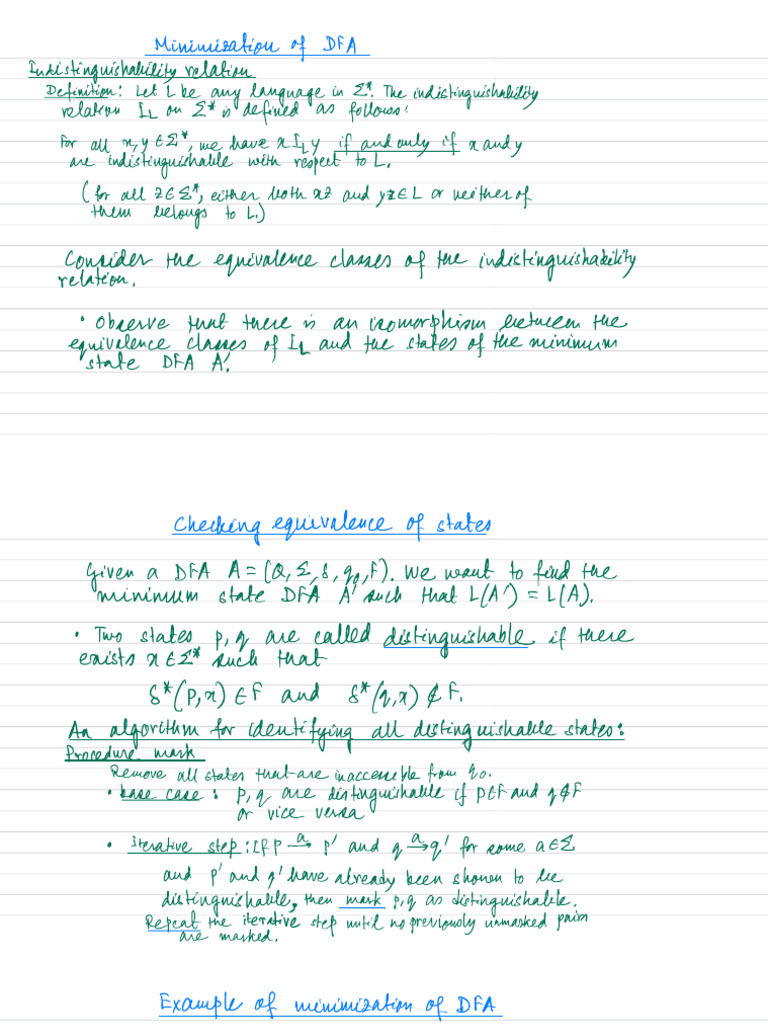 Minimization of DFA
Indistinguishability relation
Definition: Let L be any language in Σ*. The indistinguishability
relation I_L on Σ* is defined as follows:
For all x, y ∈ Σ*, we have x I_L y if and only if x and y
are indistinguishable with respect to L.
(for all z ∈ Σ*, either both xz and yz ∈ L or neither of
them belongs to L.)
Consider the equivalence classes of the indistinguishability
relation.
• Observe that there is an isomorphism between the
equivalence classes of I_L and the states of the minimum
state DFA A'.
Checking equivalence of states
Given a DFA A = (Q, Σ, δ, q₀, F). We want to find the
minimum state DFA A' such that L(A') = L(A).
• Two states p, q are called distinguishable if there
exists x ∈ Σ* such that
δ*(p, x) ∈ F and δ*(q, x) ∉ F.
An algorithm for identifying all distinguishable states:
Procedure mark
Remove all states that are inaccessible from q₀.
• base case: p, q are distinguishable if p∈F and q∉F
or vice versa
• Iterative step: If p →a p' and q →a q' for some a ∈ Σ
and p' and q' have already been shown to be
distinguishable, then mark p, q as distinguishable.
Repeat the iterative step until no previously unmarked pairs
are marked.
Example of minimization of DFA